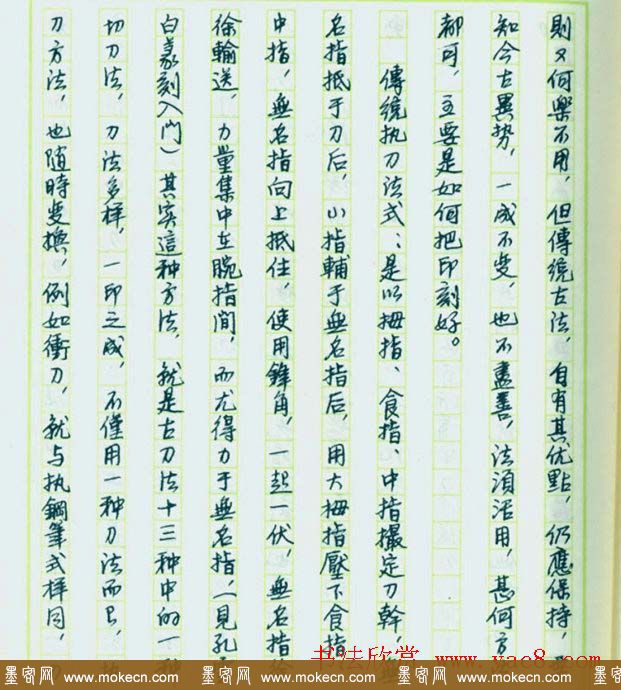 則又何樂不用，但傳统古法，自有其优點，仍應保持，
知今古異势，一成不变，也不盡善，法須活用，甚何方
都可，主要是如何把印刻好。
傳统执刀法式：是以拇指、食指、中指撮定刀幹，無
名指抵于刀后，小指輔于無名指后，用大拇指壓下食指
中指，無名指向上抵住，使用鋒角，一起一伏，無名指徐
徐輸送，力量集中在腕指间，而尤得力于無名指，（見孔
白篆刻入门）其实這种方法，就是古刀法十三种中的一种
切刀法，刀法多样，一印之成，不僅用一种刀法而已，
刀方法，也随時变换，例如衝刀，就与执鋼筆式样同，
书法欣赏 www.yac8.com
墨客网 www.mokecn.com 墨客网 www.mokecn.com 墨客网 www.mokecn.com 墨客网